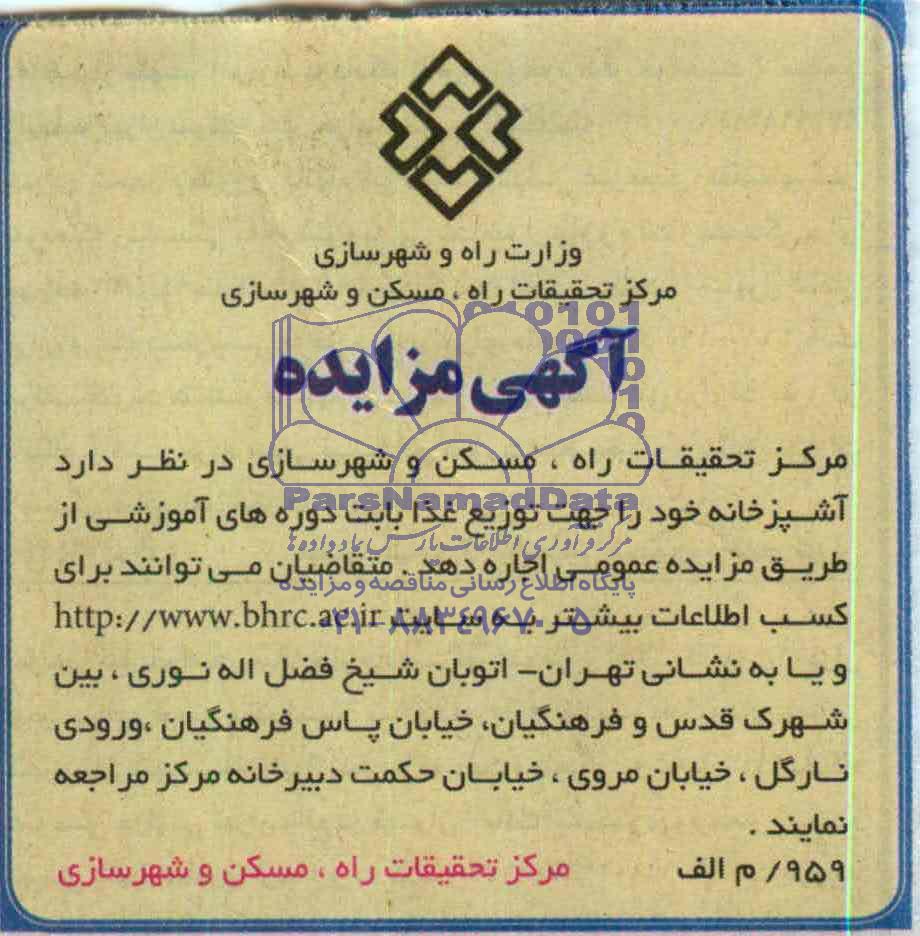 وزارت راه و شهرسازی
مرکز تحقیقات راه ، مسکن و شهرسازی
010101
0001
آگهی مزایده
مرکز تحقیقات راه ، مسکن و شهرسازی در نظر دارد
ParsNamadData
آشپزخانه خود را جهت توزیع غذا بابت دوره های آموزشی از
مرکز فرآوری اطلاعات پارس نماد داده ها
طریق مزایده عمومی اجاره دهد . متقاضیان می توانند برای
پایگاه اطلاع رسانی مناقصه و مزایده
کسب اطلاعات بیشتر به سایت http://www.bhrc.ac.ir
۰۲۱-۸۸۳۴۹۶۷۰-۵
و یا به نشانی تهران- اتوبان شیخ فضل اله نوری ، بین
شهرک قدس و فرهنگیان، خیابان پاس فرهنگیان ،ورودی
نارگل ، خیابان مروی ، خیابان حکمت دبیرخانه مرکز مراجعه
نمایند .
۹۵۹/ م الف
مرکز تحقیقات راه ، مسکن و شهرسازی